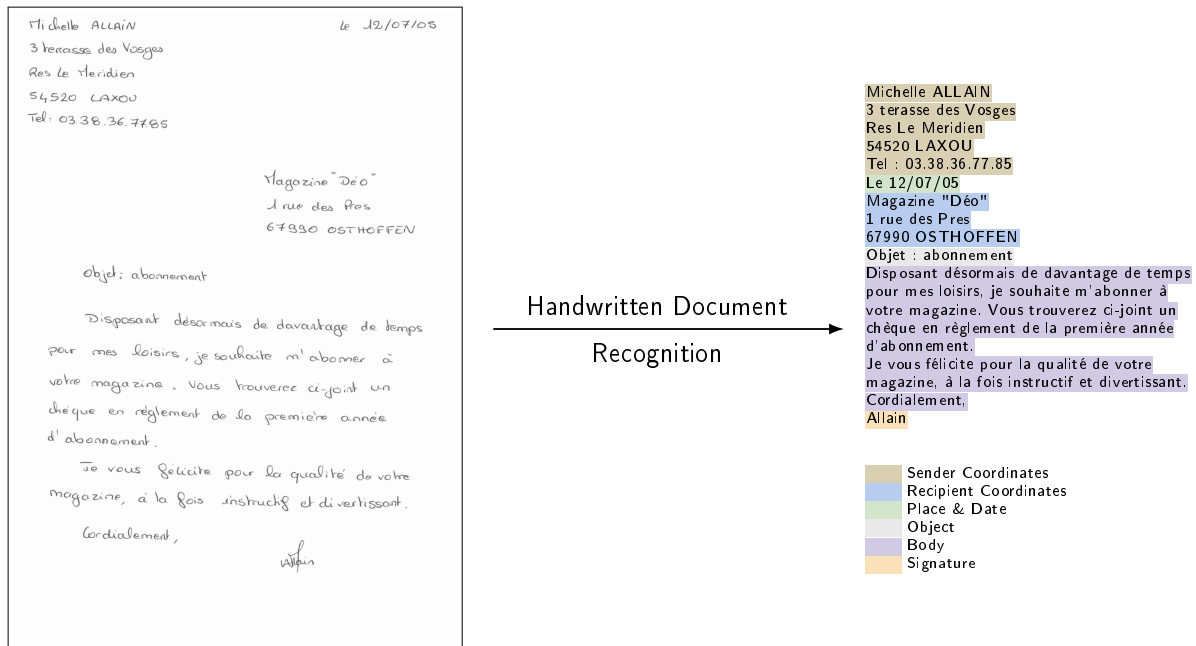 Michelle ALLAIN
le 12/07/05
3 terrasse des Vosges
Res Le Meridien
54520 LAXOU
Tel: 03.38.36.77.85
Magazine "Déo"
1 rue des Pres
67990 OSTHOFFEN
Objet: abonnement
Disposant désormais de davantage de temps
pour mes loisirs, je souhaite m'abonner à
votre magazine. Vous trouverez ci-joint un
chèque en réglement de la première année
d'abonnement.
Je vous félicite pour la qualité de votre
magazine, à la fois instructif et divertissant.
Cordialement,
Allain
Handwritten Document
Recognition
Michelle ALLAIN
3 terasse des Vosges
Res Le Meridien
54520 LAXOU
Tel : 03.38.36.77.85
Le 12/07/05
Magazine "Déo"
1 rue des Pres
67990 OSTHOFFEN
Objet : abonnement
Disposant désormais de davantage de temps
pour mes loisirs, je souhaite m'abonner à
votre magazine. Vous trouverez ci-joint un
chèque en règlement de la première année
d'abonnement.
Je vous félicite pour la qualité de votre
magazine, à la fois instructif et divertissant.
Cordialement,
Allain
Sender Coordinates
Recipient Coordinates
Place & Date
Object
Body
Signature